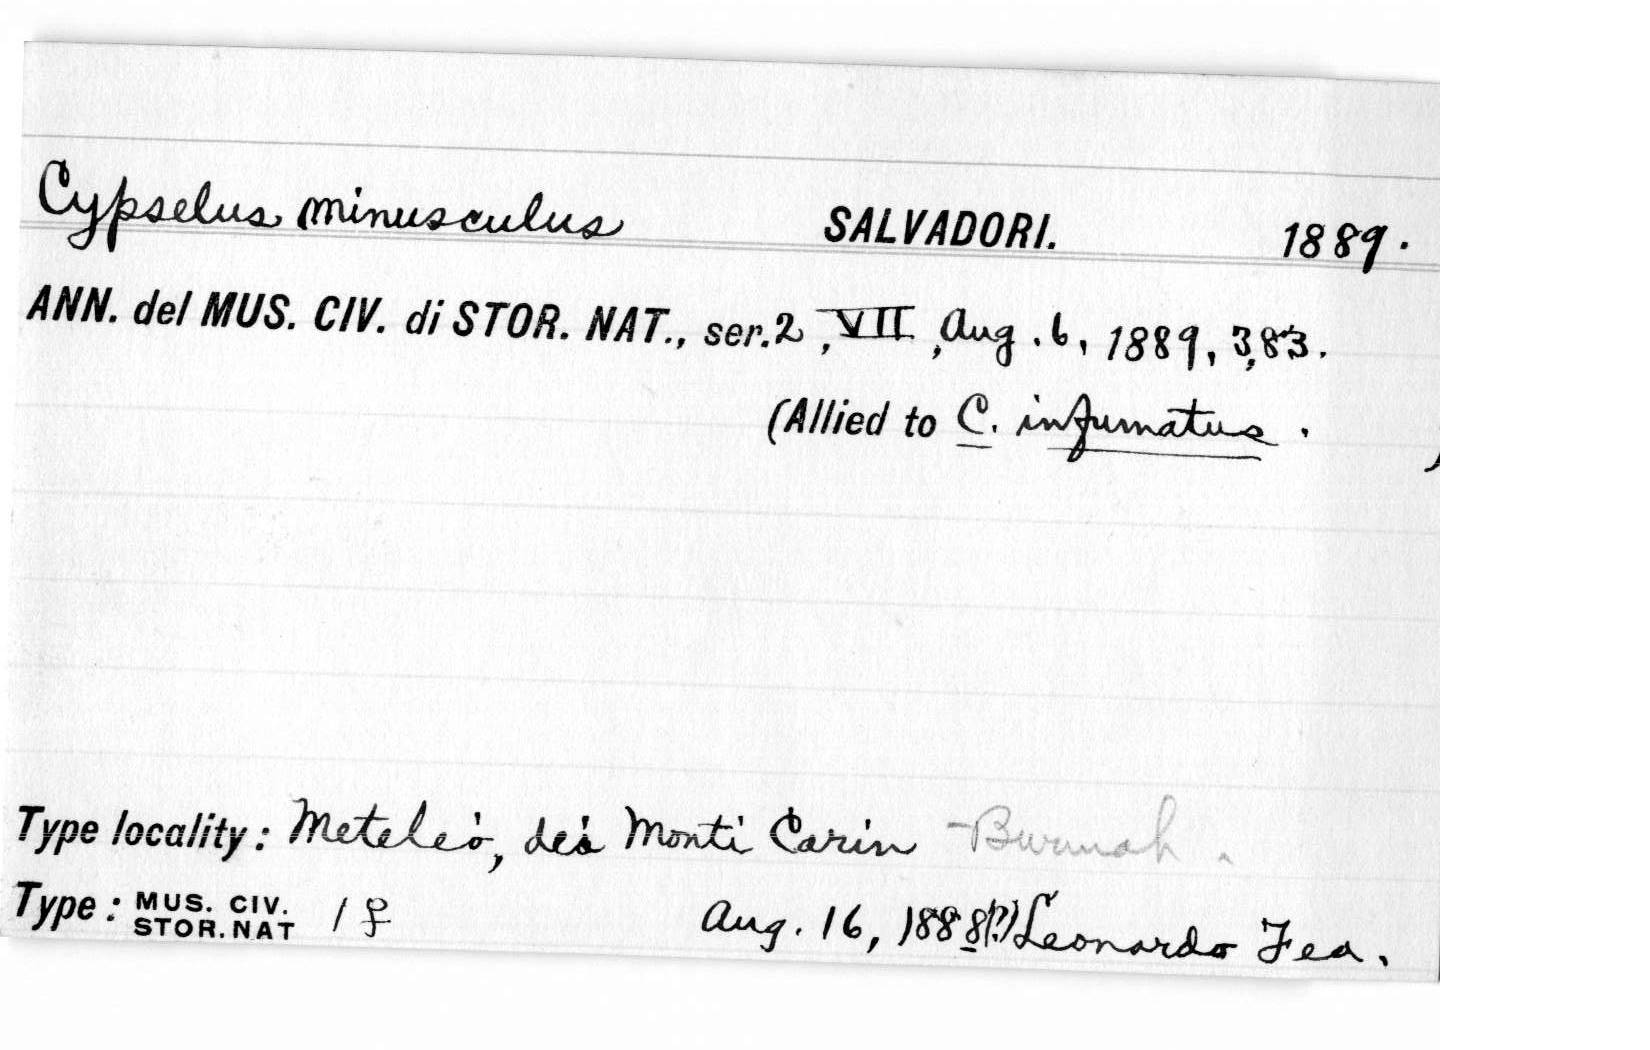 Cypselus minusculus SALVADORI. 1889.
ANN. del MUS. CIV. di STOR. NAT., ser.2, VII, Aug. 6, 1889, 383.
(Allied to C. infumatus. )
Type locality: Meteleò, dei Monti Carin - Burmah.
Type: MUS. CIV. STOR. NAT 1 ♀ Aug. 16, 1888(?) Leonardo Fea.